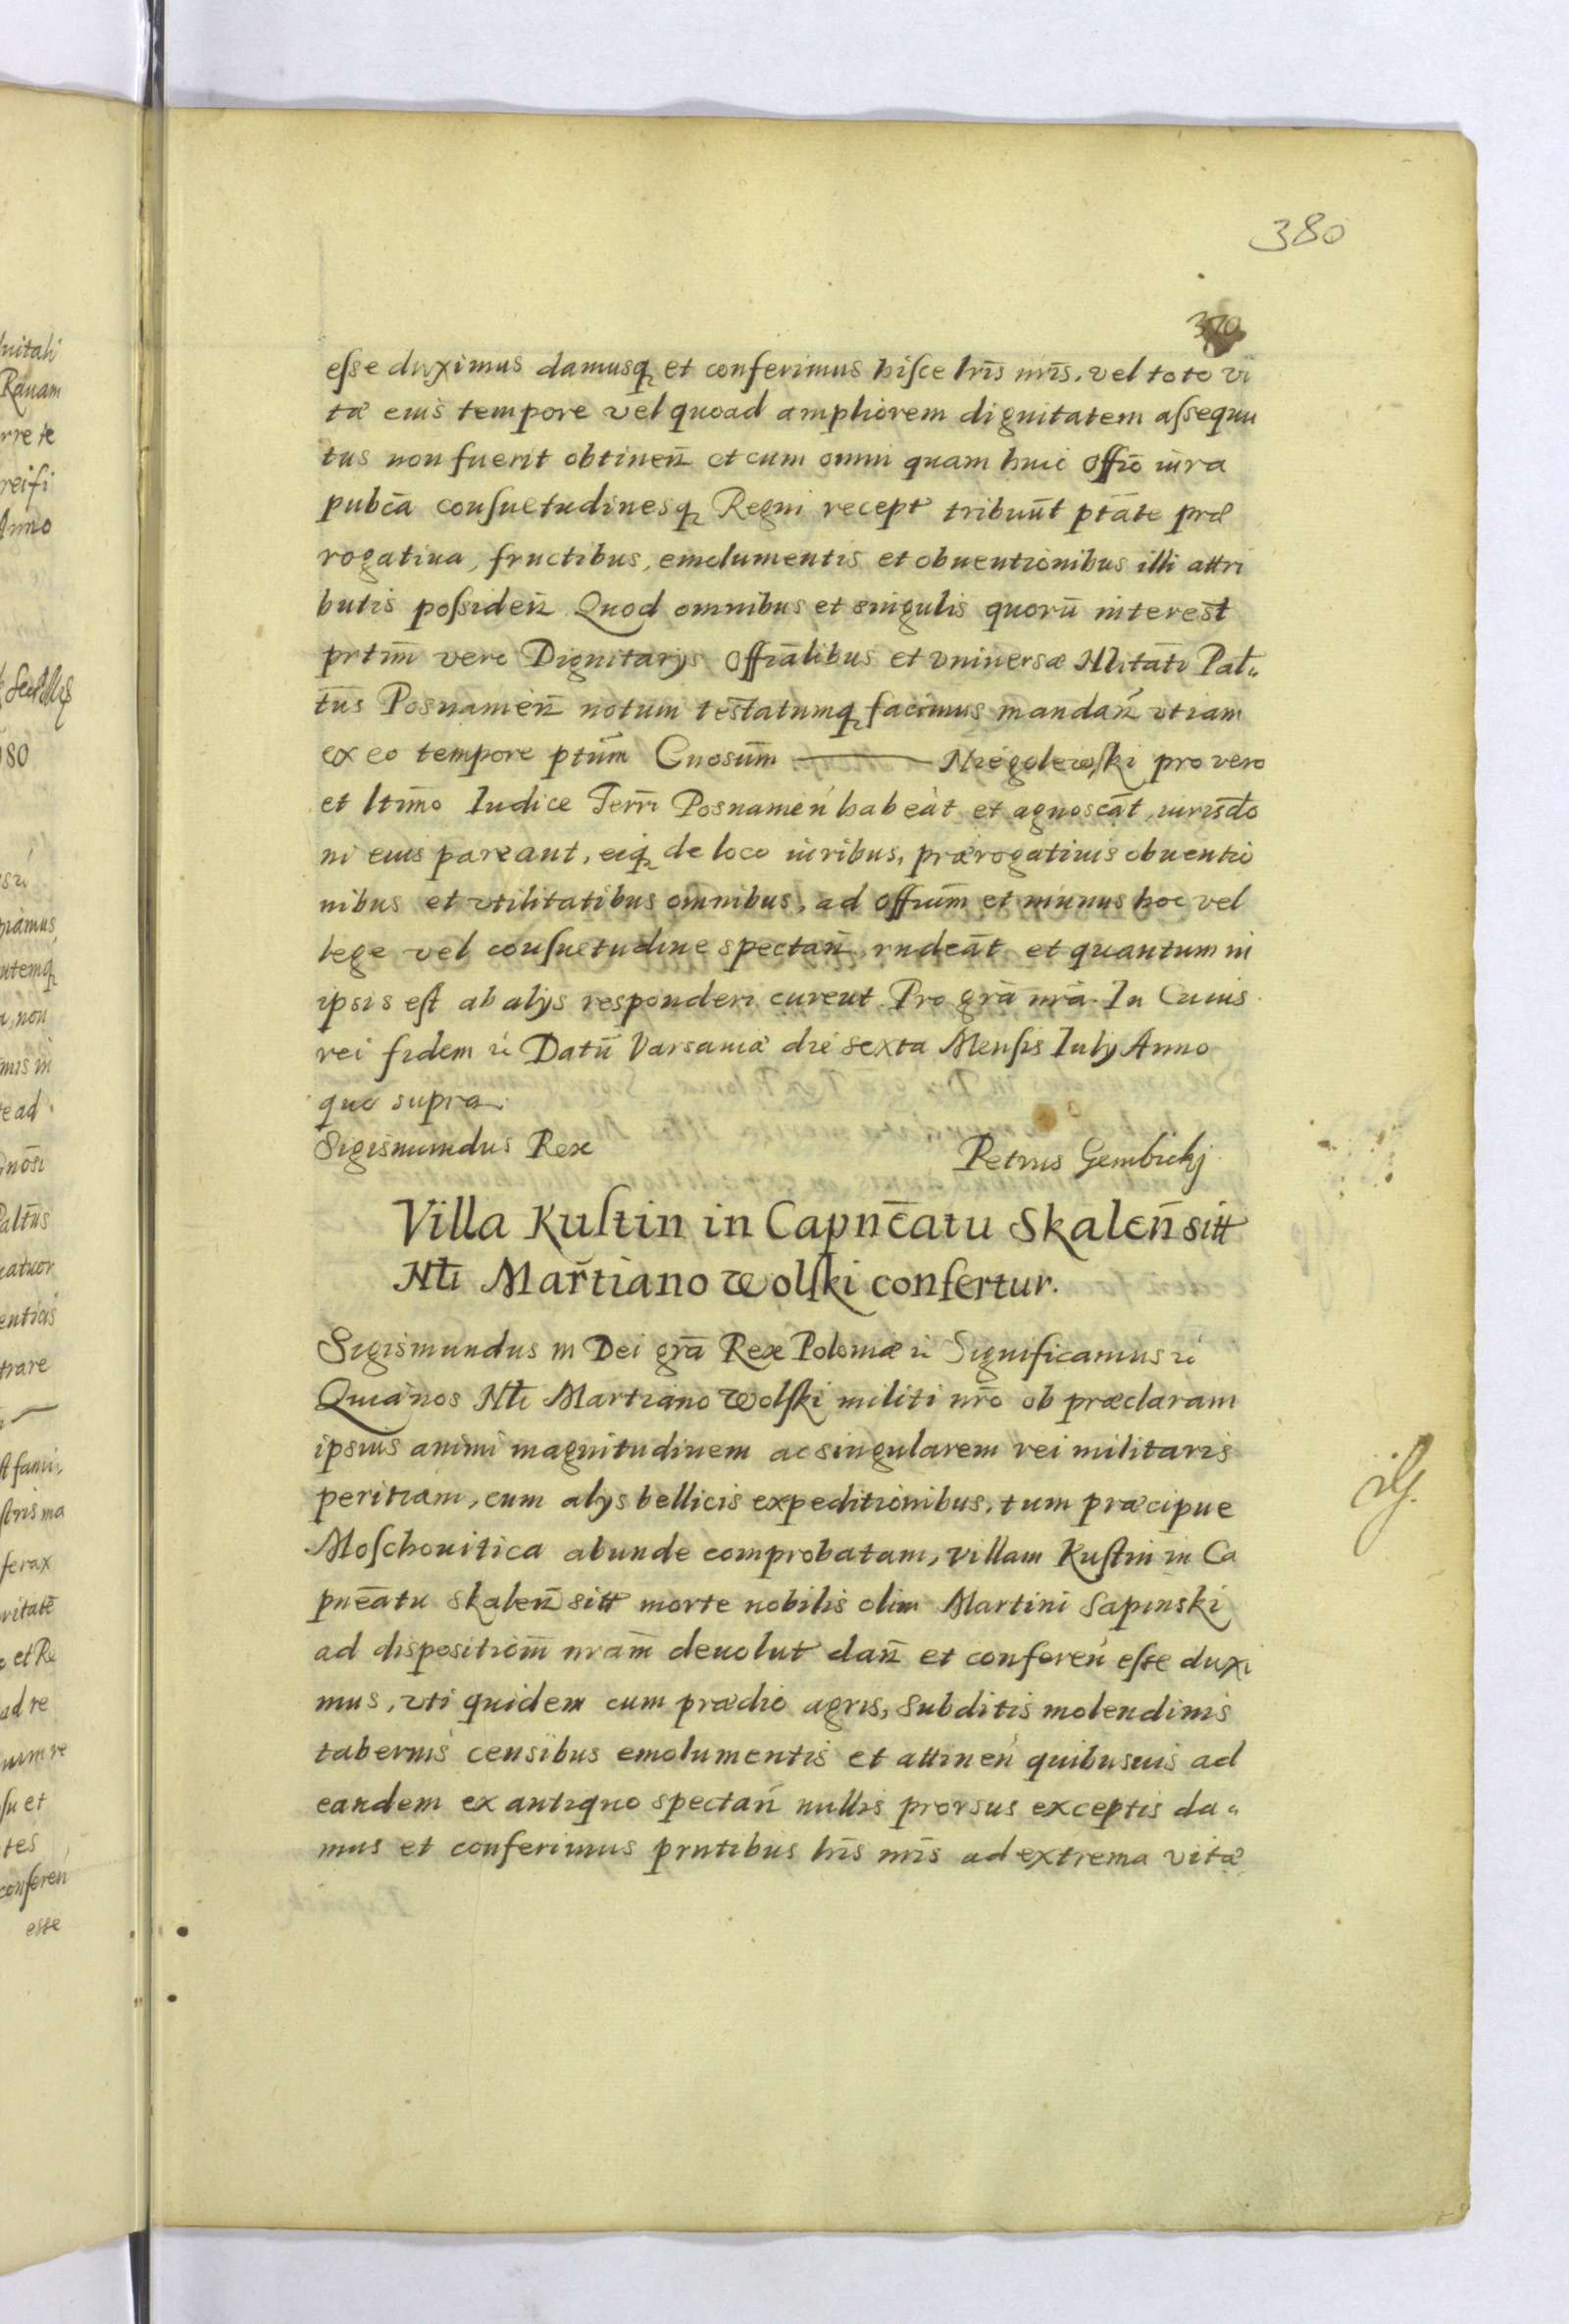 380
370
eſse duximus damusq et conferimus hiſce lrīs nrīs. vel toto vi
tæ eius tempore vel quoad ampliorem dignitatem aſsequu
tus non fuerit obtinen et cum omni quam huic offīo iura
pubca conſuetudinesq Regni recept tribuūt ptāte præ
rogatiua, fructibus, emolumentis et obuentionibus illi attri
butis poſsiden Quod omnibus et singulis quorū interest
prtim vero Dignitarys offialibus et vniuersæ Nlitati Palt
tūs Posnamien notum testatumq facimus mandan vt iam
ex eo tempore ptūm Gnosūm Niegolewski pro vero
et ltimo Iudice Terri Posnamien habeāt et agnoscāt, iurisdo
ni eius pareant, eiq de loco iuribus, prærogatiuis obuentio
nibus et vtilitatibus omnibus, ad offium et munus hoc vel
lege vel conſuetudine spectan, rndeāt et quantum in
ipsis eſt ab alys responderi curent Pro grā nrā. In Cuius
rei fidem Datū Varsauiæ die sexta Menſis Iuly Anno
quo supra.
Sigismundus Rex Petrus Gembickj
Villa Kuſtin in Capnēatu Skalen sitt
Nli Martiano Wolſki confertur.
Sigismundus III Dei grā Rex Poloniæ Significamus
Quia nos Nli Martiano Wolſki militi nrō ob præclaram
ipsius animi magnitudinem ac singularem rei militaris
peritiam, cum alys bellicis expeditionibus, tum præcipue
Moſchouitica abunde comprobatam, villam Kuſtin in Ca
pnēatu Skalen sitt morte nobilis olim Martini Sapinski
ad dispositiom nram deuolut dan et conferen eſse duxi
mus, vti quidem cum prædio agris, subditis molendinis
tabernis censibus emolumentis et attinen quibusuis ad
eandem ex antiquo spectan nullis prorsus exceptis da
mus et conferimus prntibus lrīs nrīs ad extrema vitæ